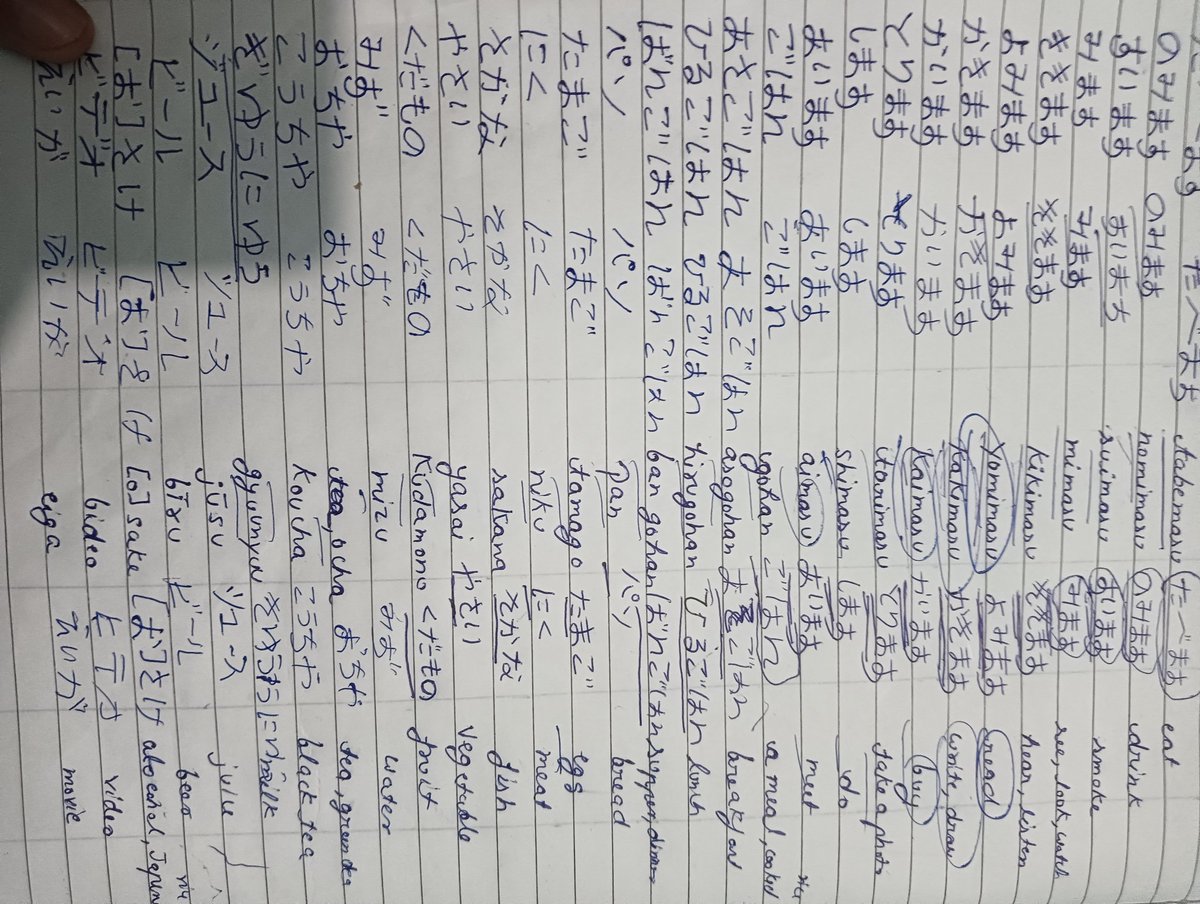 たべます tabemasu たべます eat
のみます のみます nomimasu のみます drink
すいます すいます suimasu すいます smoke
みます みます mimasu みます see, look, watch
ききます ききます kikimasu ききます hear, listen
よみます よみます Yomimasu よみます read
かきます かきます Kakimasu かきます write, draw
かいます かいます Kaimasu かいます buy
とります とります torimasu とります take a photo
します します shimasu します do
あいます あいます aimasu あいます meet
ごはん ごはん gohan ごはん a meal, cooked rice
あさごはん あさごはん asagohan あさごはん breakfast
ひるごはん ひるごはん hirugohan ひるごはん lunch
ばんごはん ばんごはん ban gohan ばんごはん supper, dinner
パン パン pan パン bread
たまご たまご tamago たまご egg
にく にく niku にく meat
さかな さかな sakana さかな fish
やさい やさい yasai やさい vegetable
くだもの くだもの Kudamono くだもの fruit
みず みず mizu みず water
おちゃ おちゃ ocha おちゃ tea, green tea
こうちゃ こうちゃ koucha こうちゃ black tea
ぎゅうにゅう gyuunyu ぎゅうにゅう milk
ジュース ジュース jūsu ジュース juice
ビール ビール bīru ビール beer
[お]さけ [お]さけ [o]sake [お]さけ alcohol, Japan
ビデオ ビデオ bideo ビデオ video
えいが えいが eiga えいが movie